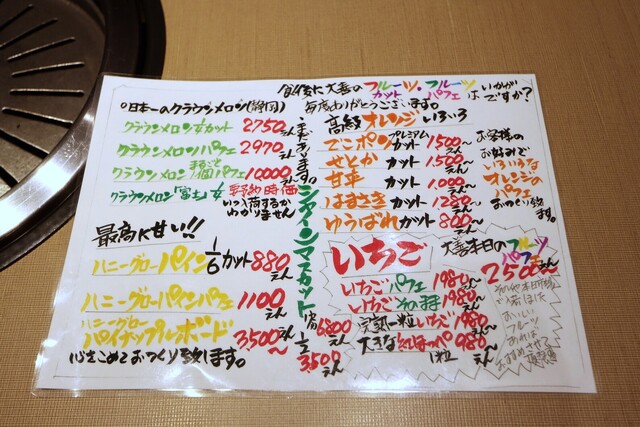 食後に大善のフルーツカット・フルーツパフェはいかがですか?
毎度ありがとうございます。
日本一のクラウンメロン(静岡)
クラウンメロン1/8カット 2750えん
クラウンメロンパフェ 2970えん
クラウンメロンまるごと1個パフェ 10000えん
クラウンメロン「富士」
要予約時価
いつ入荷するかわかりません
最高に甘い!!
ハニーグローパイン1/6カット 880えん
ハニーグローパインパフェ 1100えん
ハニーグローパイナップルボード 3500えん〜
心をこめておつくり致します。
シャインマスカット
1房 6800えん
1/2 3500えん
高級オレンジいろいろ
でこポンプレミアムカット 1500えん〜
せとかカット 1500えん〜
甘平カット 1000えん〜
はまさきカット 1280えん〜
ゆうばれカット 800えん〜
お客様のお好みでいろいろなオレンジのパフェおつくり致します。
いちご
いちごパフェ 1980えん〜
いちごそのまま 1980えん〜
完熟一粒いちご 980えん〜
大きな紅ほっぺ1粒 980えん〜
大善本日のフルーツパフェ
2500えん〜